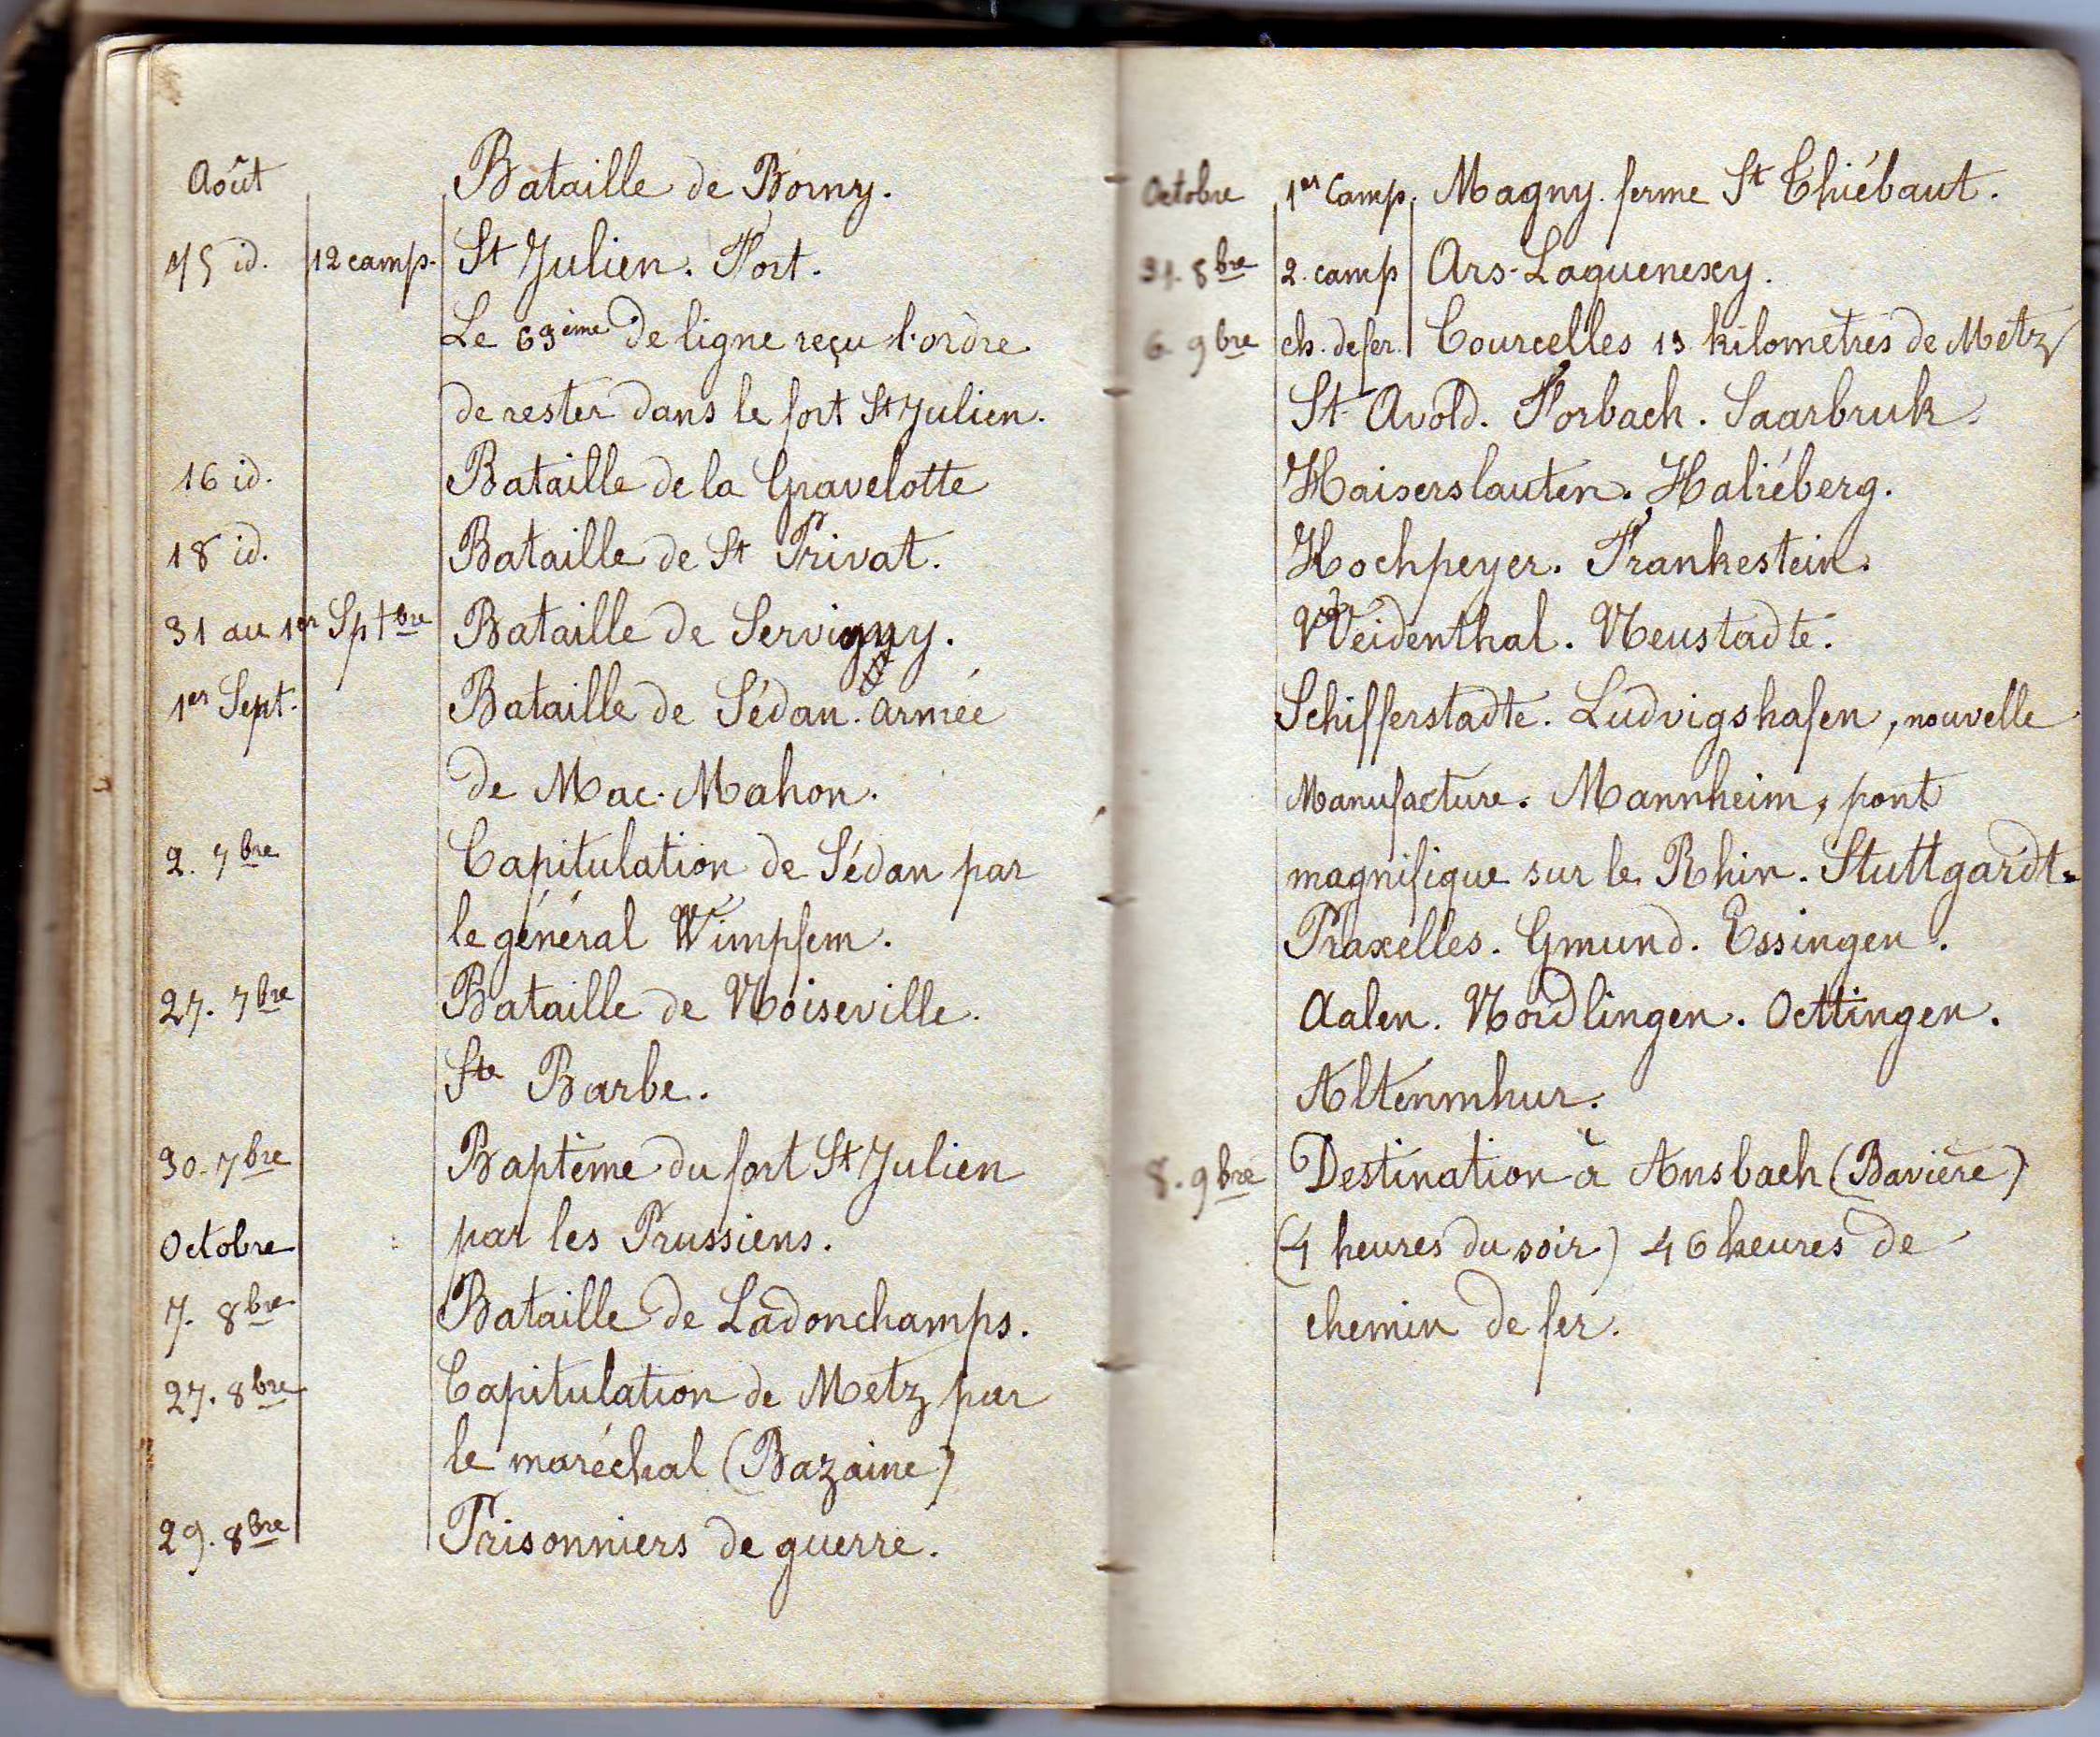 Août Bataille de Borny.
15 id. 12 camp. St Julien. Fort.
Le 63ème de ligne reçu l'ordre
de rester dans le fort St Julien.
16 id. Bataille de la Gravelotte
18 id. Bataille de St Privat.
31 au 1er Sptbre Bataille de Servigny.
1er Sept. Bataille de Sédan. Armée
de Mac-Mahon.
2. 7bre Capitulation de Sédan par
le général Wimpfem.
27. 7bre Bataille de Noiseville.
Ste Barbe.
30. 7bre Baptème du fort St Julien
Octobre par les Prussiens.
7. 8bre Bataille de Ladonchamps.
27. 8bre Capitulation de Metz par
le maréchal (Bazaine)
29. 8bre Prisonniers de guerre.
Octobre 1er Camp. Magny. ferme St Thiébaut.
31. 8bre 2. camp Ars-Laquenexy.
6. 9bre ch. de fer. Courcelles 13 kilometres de Metz
St Avold. Forbach. Saarbruk.
Kaiserslauten. Kaliéberg.
Hochpeyer. Frankestein.
Weidenthal. Neustadte.
Schifferstadte. Ludvigshafen, nouvelle
Manufacture. Mannheim, pont
magnifique sur le Rhin. Stuttgardt.
Praxelles. Gmund. Essingen.
Aalen. Nordlingen. Oettingen.
Altenmhur.
8. 9bre Destination à Ansbach (Bavière)
(4 heures du soir) 46 heures de
chemin de fer.